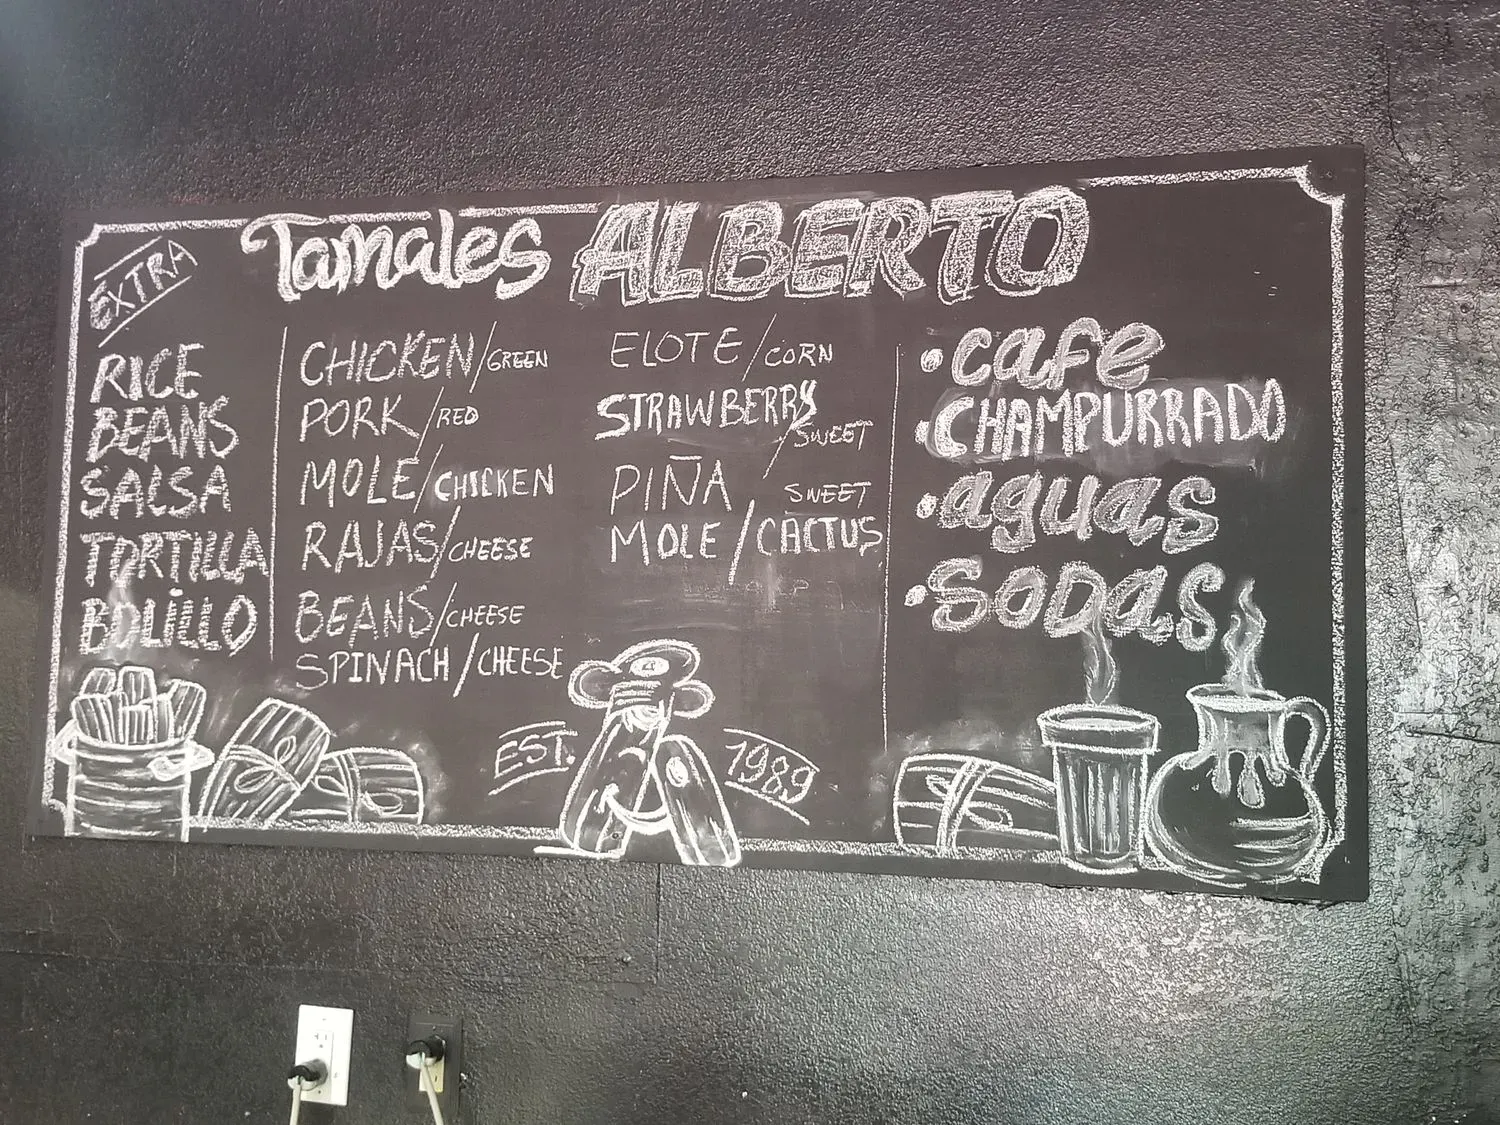 Tamales ALBERTO
EXTRA
RICE
BEANS
SALSA
TORTILLA
BOLILLO
CHICKEN/GREEN
PORK/RED
MOLE/CHICKEN
RAJAS/CHEESE
BEANS/CHEESE
SPINACH/CHEESE
ELOTE/CORN
STRAWBERRY/SWEET
PIÑA SWEET
MOLE/CACTUS
•cafe
•CHAMPURRADO
•aguas
•SODAS
EST. 1989